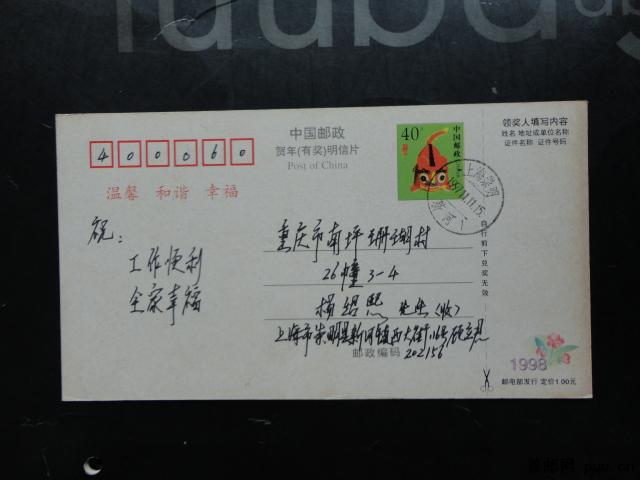 中国邮政
贺年(有奖)明信片
Post of China
400060
温馨 和谐 幸福
40分
中国邮政
上海崇明
领奖人填写内容
姓名 地址或单位名称
证件名称 证件号码
自行剪下兑奖无效
祝:
工作顺利
全家幸福
重庆市南坪珊瑚村
26幢3-4
杨绍熙 先生(收)
上海市崇明县新河镇西大街116号
邮政编码 202156
1998
邮电部发行 定价1.00元